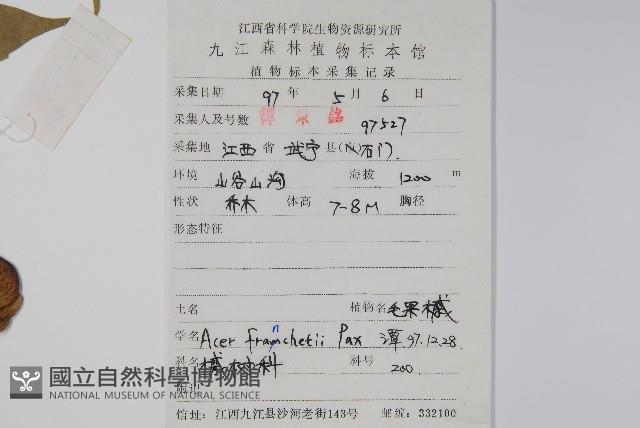 江西省科学院生物资源研究所
九江森林植物标本馆
植物标本采集记录
采集日期 97 年 5 月 6 日
采集人及号数 譚策銘 97527
采集地 江西 省 武宁 县(市)石门.
环境 山谷山沟 海拔 1200 m
性状 乔木 体高 7-8M 胸径
形态特征
土名 植物名 毛果槭
学名 Acer franchetii Pax 潭 97.12.28
科名 槭树科 科号 200
附记
國立自然科學博物館
NATIONAL MUSEUM OF NATURAL SCIENCE
馆址:江西九江县沙河老街143号 邮编:332100